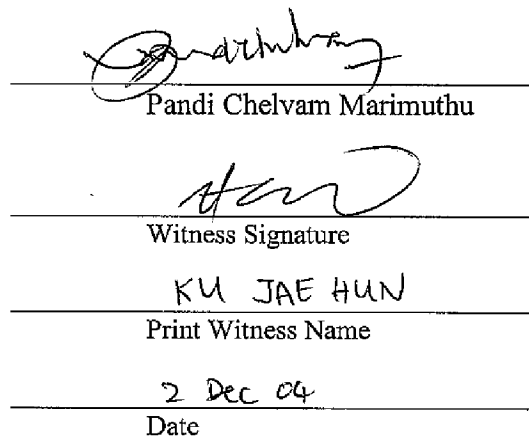 Pandi Chelvam Marimuthu
Witness Signature
KU JAE HUN
Print Witness Name
2 Dec 04
Date